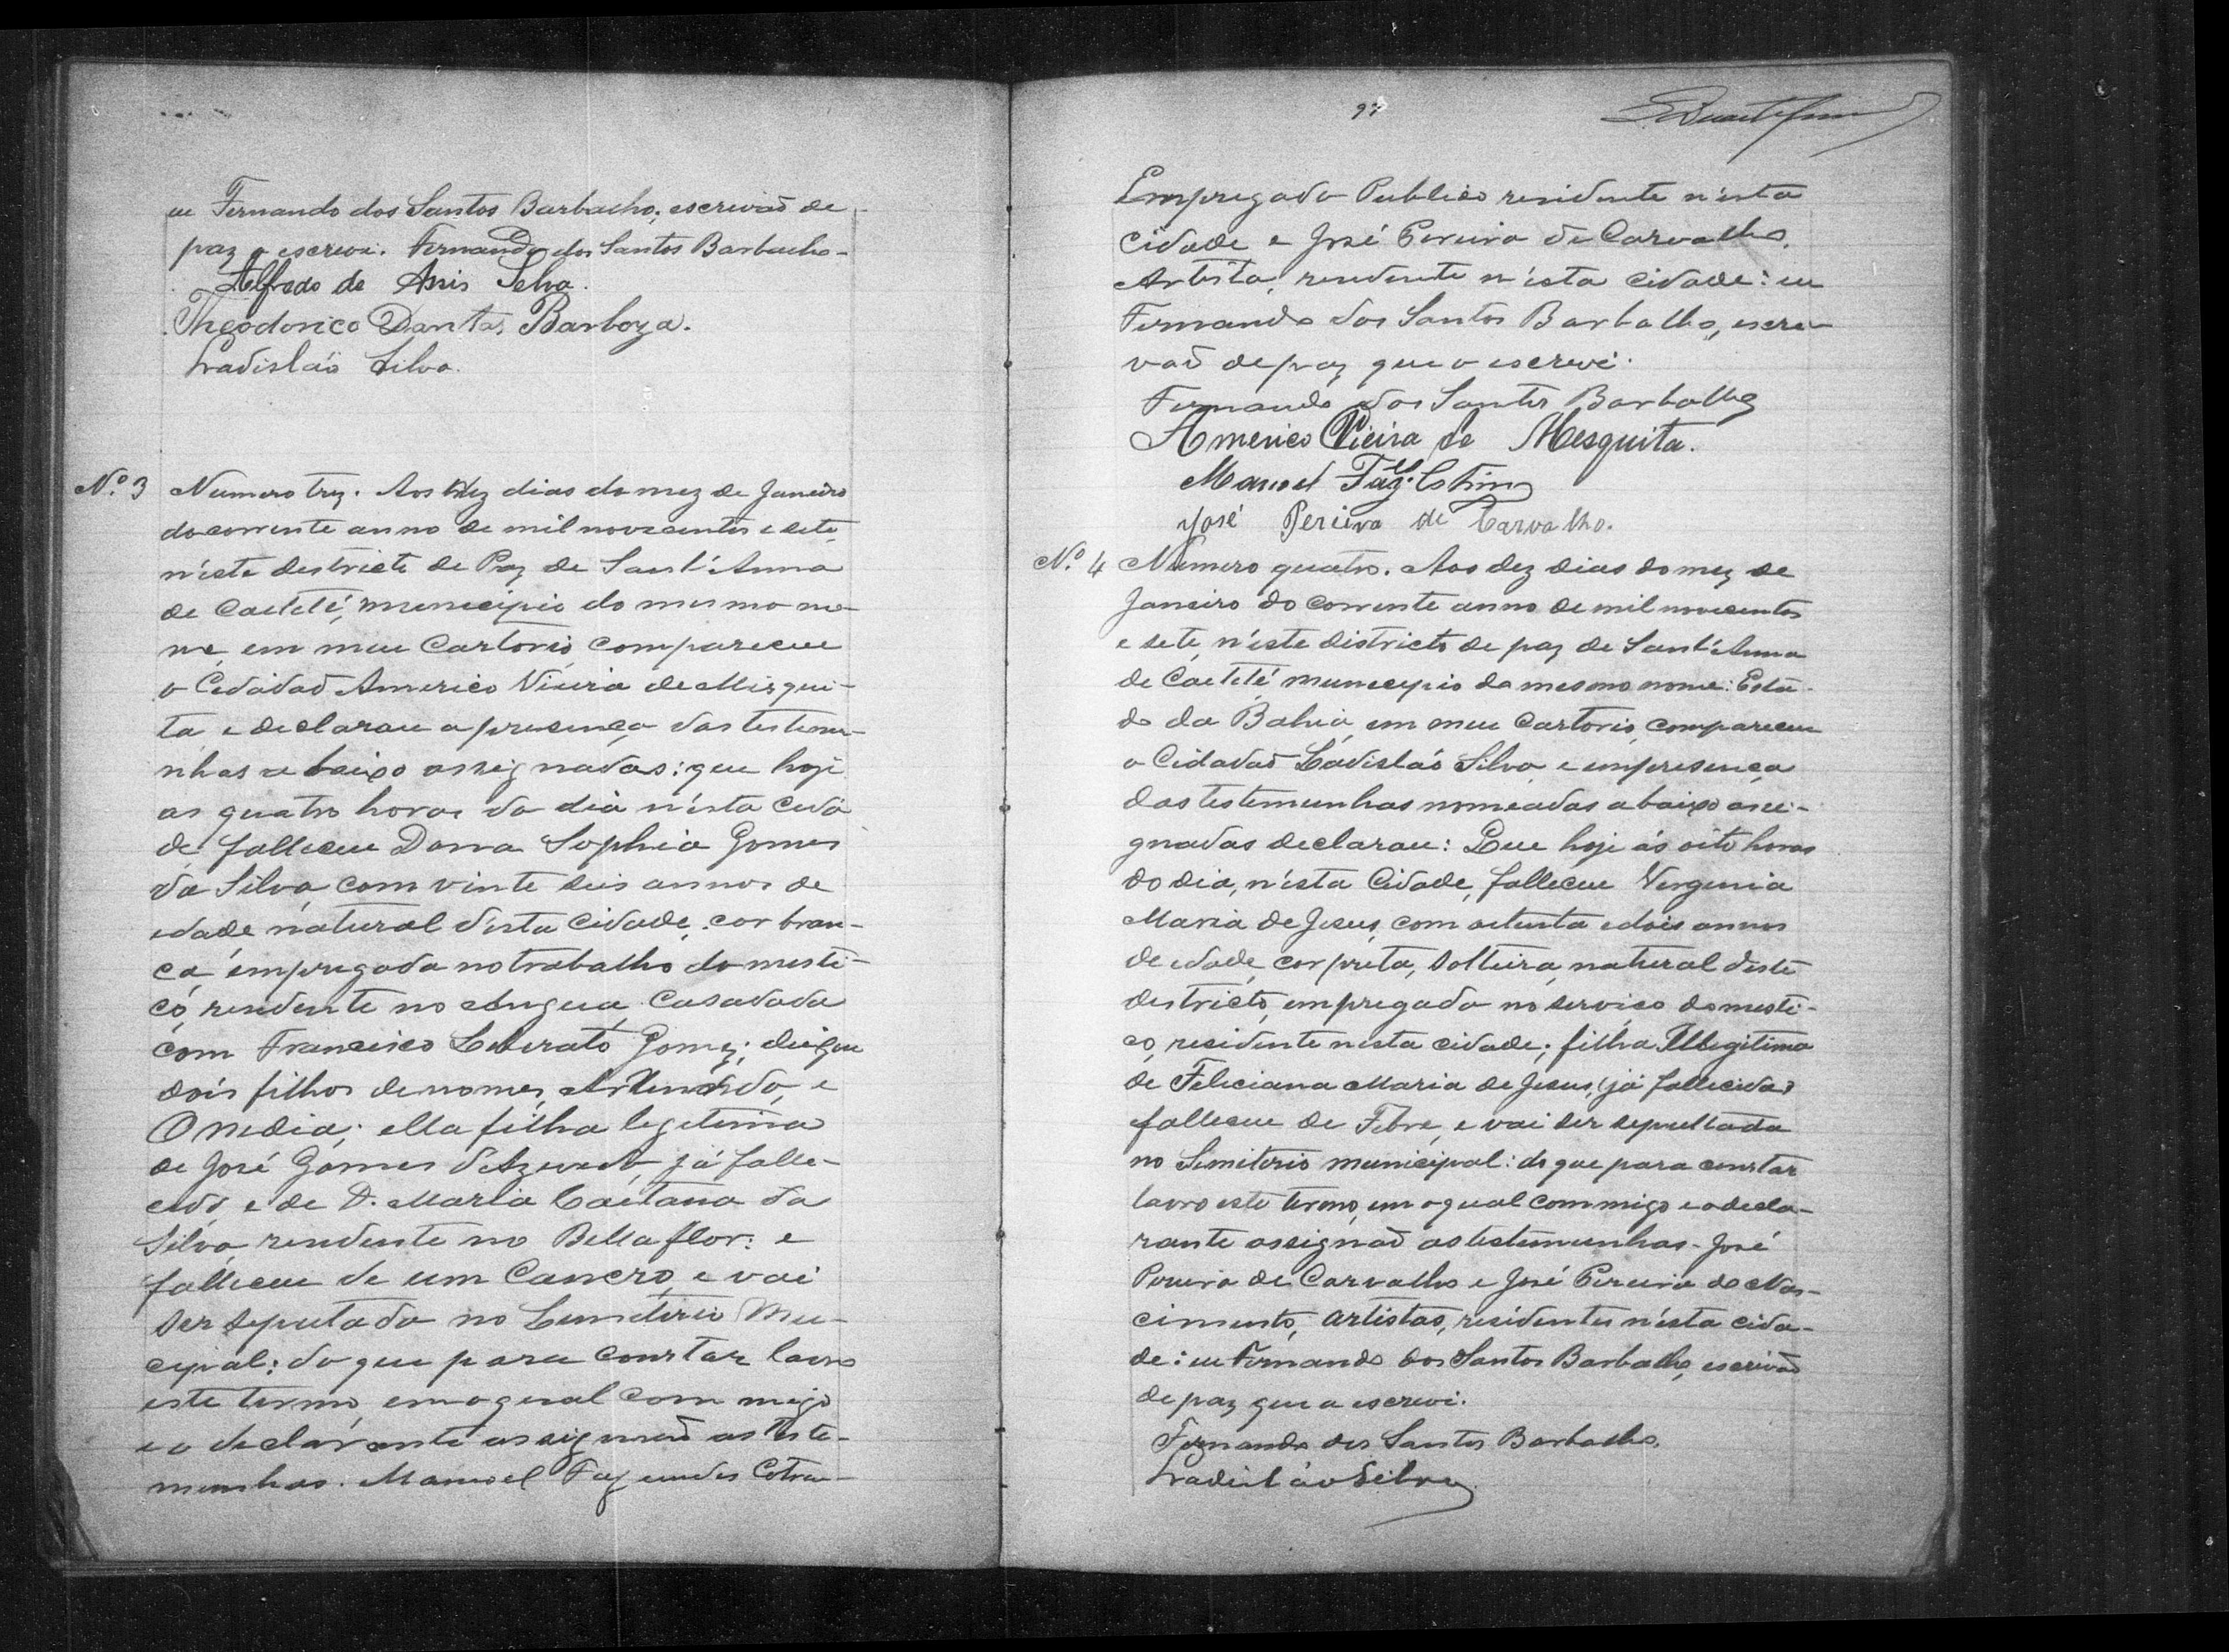 eu Fernando dos Santos Barbalho, escrivão de
paz o escrevi. Fernando dos Santos Barbalho
Alfredo de Assis Silva.
Theodorico Dantas Barboza.
Ladisláo Silva.
Nº 3 Numero trez. Aos dez dias do mez de Janeiro
do corrente anno de mil novecentos e sete,
n'este destricto de Paz de Sant'Anna
de Caeteté, municipio do mesmo no-
me, em meu Cartorio compareceu
o Cidadão Americo Vieira de Misqui-
ta, e declarou a presença das testemu-
nhas abaixo assignadas: que hoje
as quatro horas do dia n'esta Cida
de falleceu Dona Sophia Gomes
da Silva, com vinte seis annos de
edade, natural d'esta Cidade, cor bran-
ca, empregada no trabalho domesti-
co, residente no Casada
com Francisco Liberato Gomes; deixou
dois filhos de nomes e
Onedia; ella filha legitima
de José Gomes d'Azevedo, já falle-
cido, e de D. Maria Caetana da
Silva, residente no Bella flor: e
falleceu de um Cancro, e vai
ser seputada no Cemiterio Mu-
cipal: do que para constar lavro
este termo, em o qual com migo
e o declarante assignão as teste-
munhas. Manoel Fazendes Cotrin
97
Empregado Publico residente n'esta
Cidade e José Pereira de Carvalho,
Artista, residente n'esta cidade: eu
Fernando dos Santos Barbalho, escri-
vão de paz que o escrevi.
Fernando dos Santos Barbalho
Americo Vieira de Mesquita.
Manoel Faz.es Cotrim
José Pereira de Carvalho.
Nº 4 Numero quatro. Aos dez dias do mez de
Janeiro do corrente anno de mil novecentos
e sete, n'este districto de paz de Sant'Anna
de Caeteté municipio do mesmo nome: Esta-
do da Bahia, em meu Cartorio, compareceu
o Cidadão Ladisláo Silva, e em presença
das testemunhas nomeadas abaixo assi-
gnadas declarou: Que hoje ás oito horas
do dia, n'esta Cidade, falleceu Verginia
Maria de Jesus, com oitenta e dois annos
de edade, cor preta, solteira, natural deste
destricto, empregada no serviço domesti-
co, residente nesta cidade; filha Illegitima
de Feliciana Maria de Jesus, (já fallecida)
falleceu de Febre, e vai ser sepultada
no Semiterio municipal: do que para constar
lavro este termo, em o qual commigo e o decla-
rante assignão as testemunhas - José
Pereira de Carvalho e José Pereira do Nas-
cimento, artistas, residentes n'esta cida-
de: eu Fernando dos Santos Barbalho, escrivão
de paz que o escrevi.
Fernando dos Santos Barbalho,
Ladisláo Silva